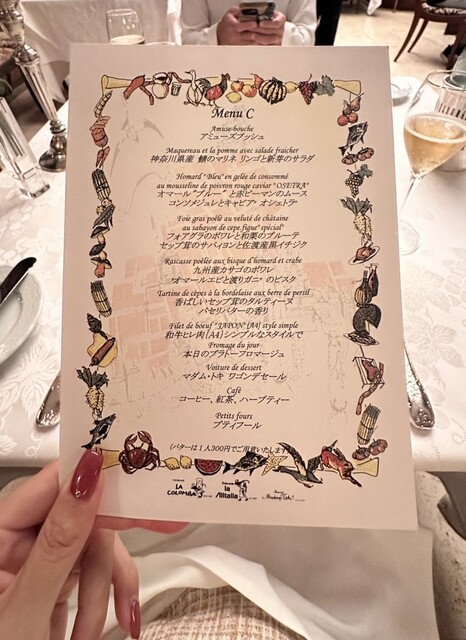 Menu C
Amuse-bouche
アミューズブッシュ
Maquereau et la pomme avec salade fraicher
神奈川県産 鯖のマリネ リンゴと新芽のサラダ
Homard "Bleu" en gelée de consommé
au mousseline de poivron rouge caviar "OSETRA"
オマール"ブルー"と赤ピーマンのムース
コンソメジュレとキャビア オシェトラ
Foie gras poêlé au veluté de châtaine
au sabayon de cepe,figue" spécial"
フォアグラのポワレと和栗のブルーテ
セップ茸のサバイヨンと佐渡産黒イチジク
Rascasse poêlée aux bisque d'homard et crabe
九州産カサゴのポワレ
"オマールエビと渡りガニ" のビスク
Tartine de cèpes à la bordelaise aux berre de persil
香ばしいセップ茸のタルティーヌ
パセリバターの香り
Filet de boeuf "JAPON" {A4} style simple
和牛ヒレ肉{A4}シンプルなスタイルで
Fromage du jour
本日のプラトーフロマージュ
Voiture de dessert
マダム・トキ ワゴンデセール
Café
コーヒー、紅茶、ハーブティー
Petits fours
プティフール
(バターは1人300円でご用意いたします)
LA COLOMBA
la Alitalia